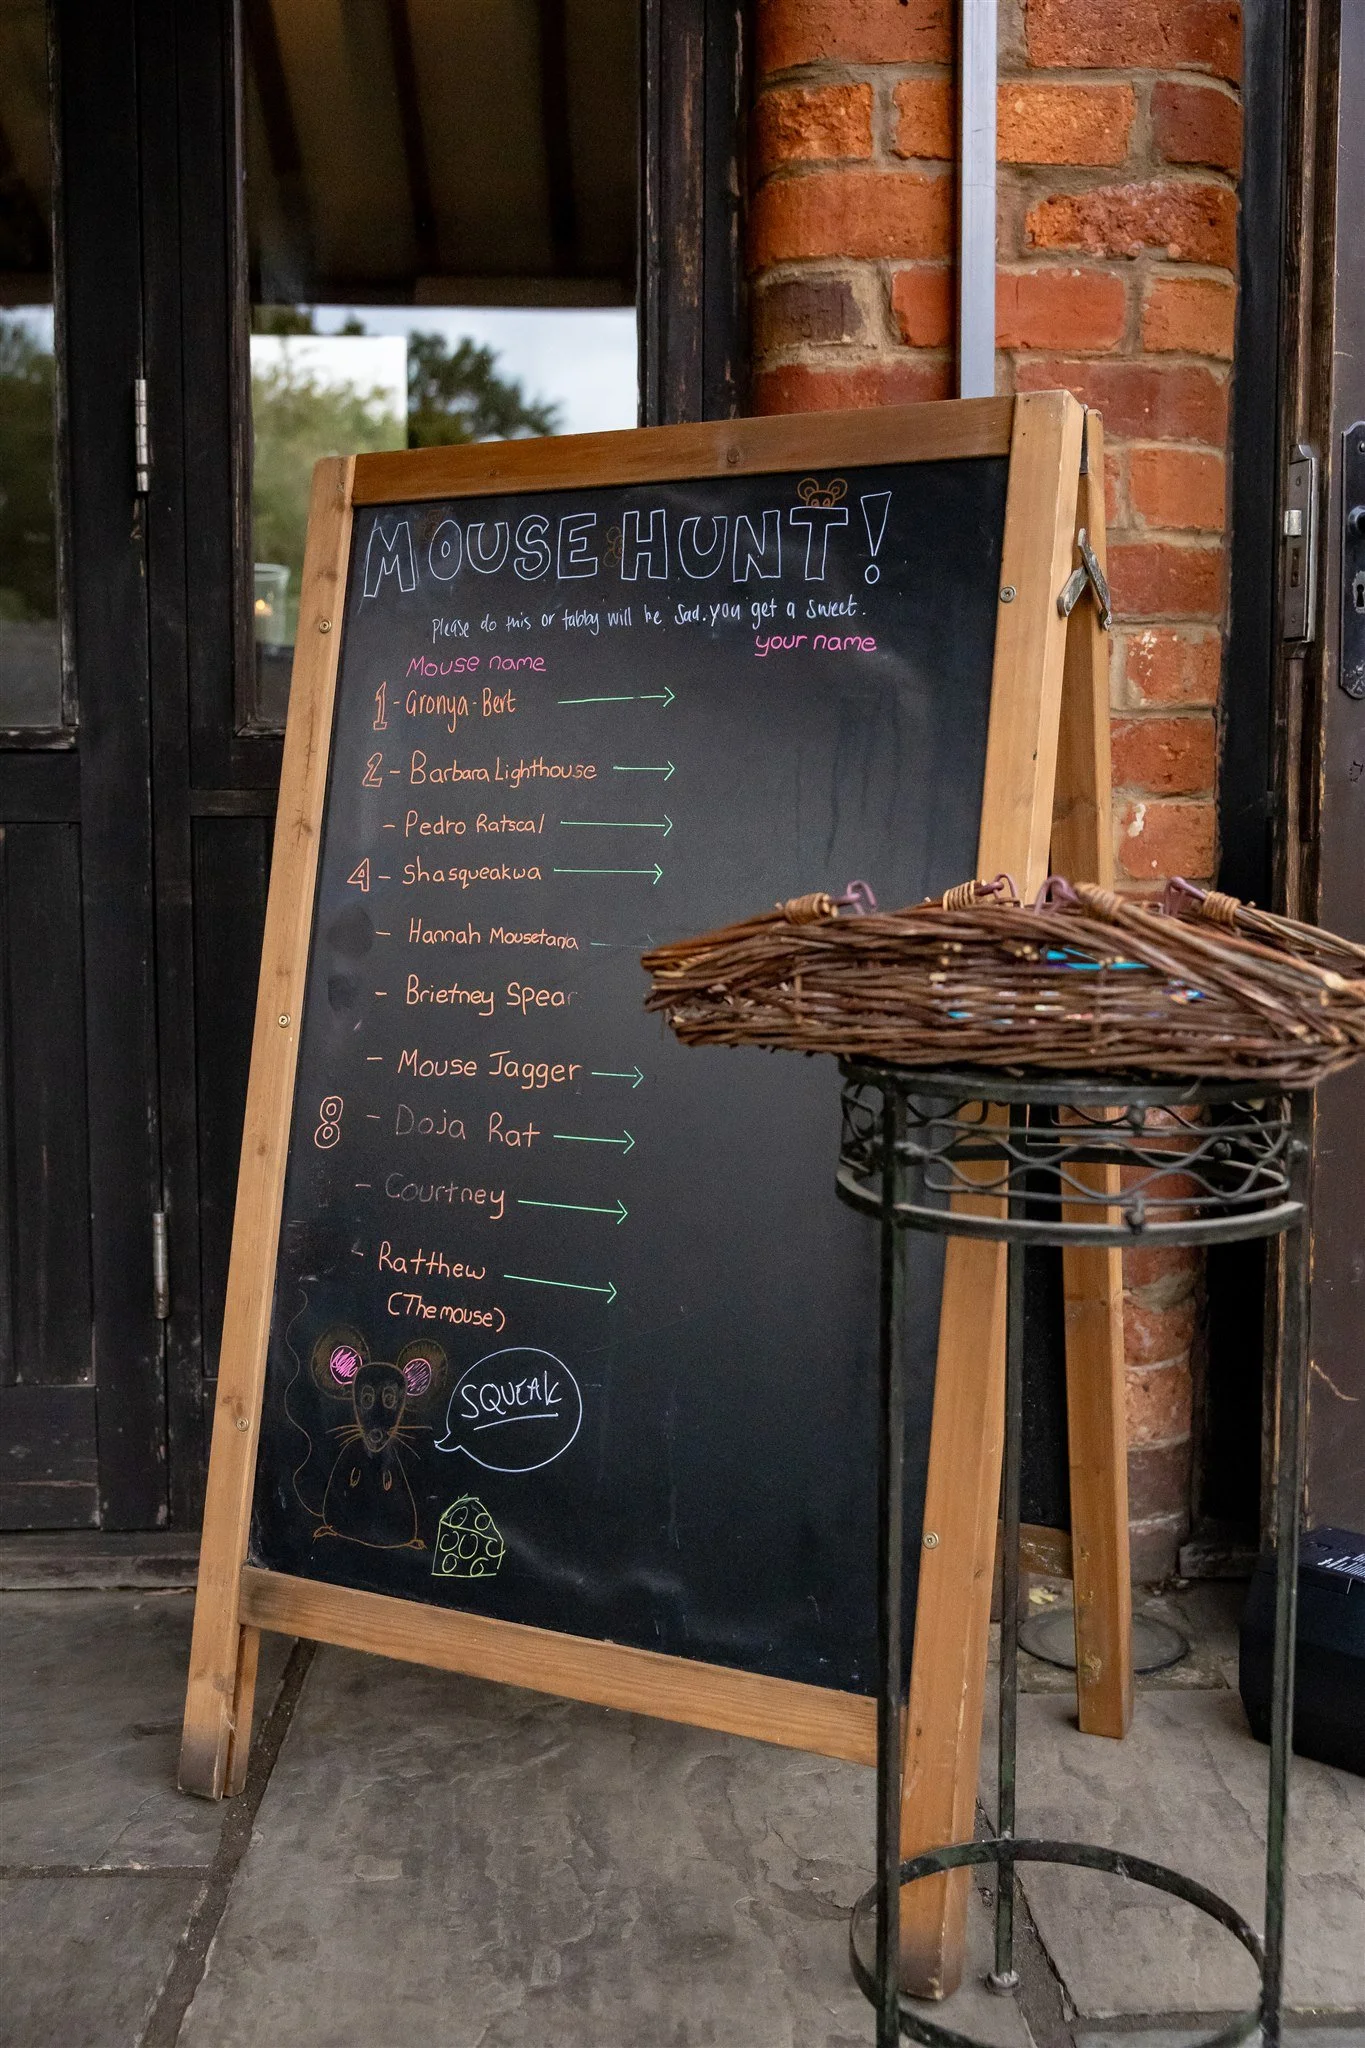 MOUSE HUNT!
Please do this or tabby will be sad. you get a sweet.
Mouse name your name
1 - Gronya-Bert
2 - Barbara Lighthouse
- Pedro Ratscal
4 - Shasqueakwa
- Hannah Mousetana
- Brietney Spear
- Mouse Jagger
8 - Doja Rat
- Courtney
- Ratthew
(The mouse)
SQUEAK